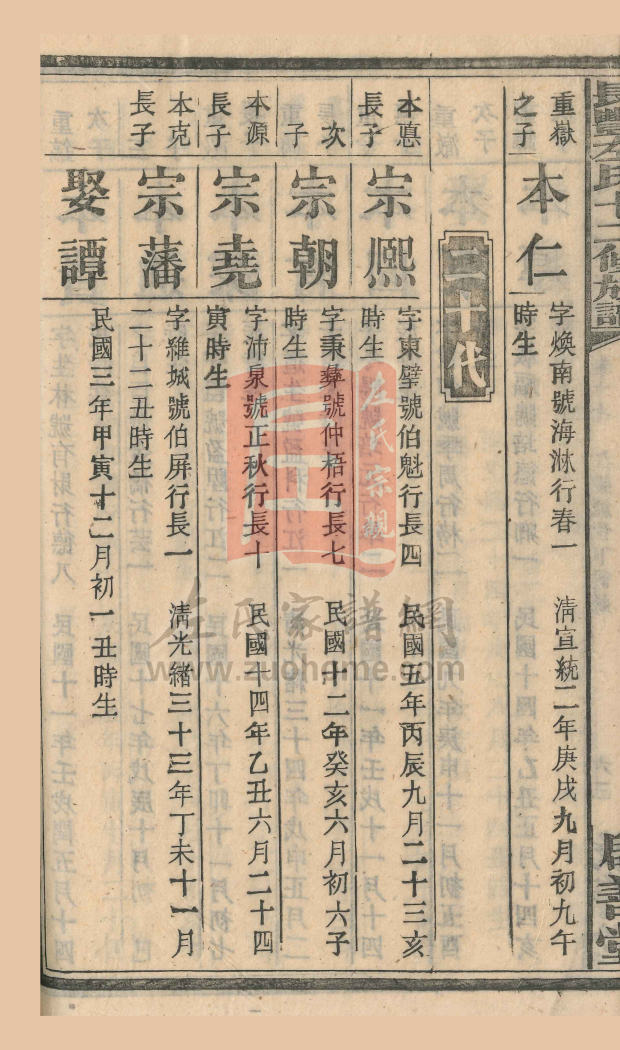 重嶽
之子
本仁
字煥南號海淋行春一　清宣統二年庚戌九月初九午
時生
二十代
本悳
長子
宗熙
字東壁號伯魁行長四　民國五年丙辰九月二十三亥
時生
次
子
宗朝
字秉彝號仲梧行長七　民國十二年癸亥六月初六子
時生
本源
長子
宗堯
字沛泉號正秋行長十　民國十四年乙丑六月二十四
寅時生
本克
長子
宗藩
字維城號伯屏行長一　清光緒三十三年丁未十一月
二十二丑時生
娶譚
民國三年甲寅十二月初一丑時生
左氏宗親
左氏家譜網
www.zuohome.com